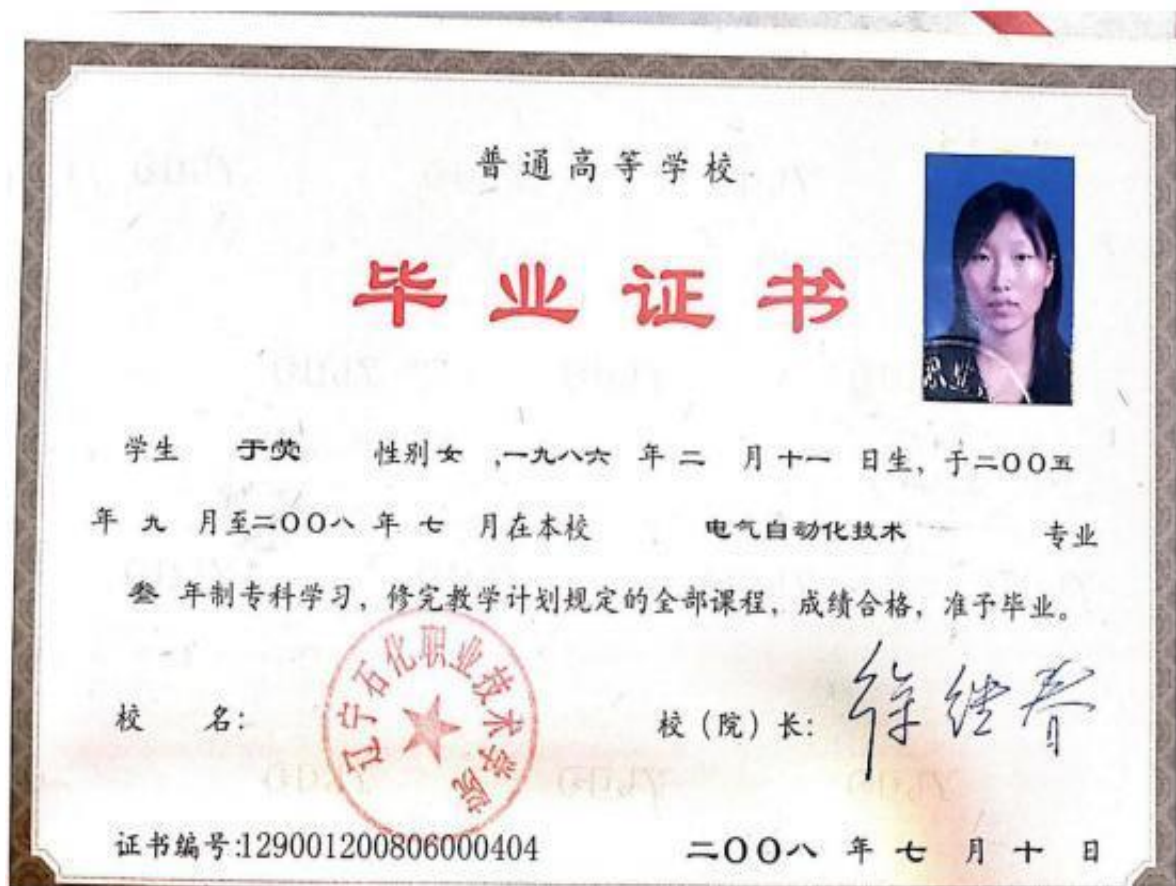 普通高等学校
毕业证书
职业
学生 于荧 性别 女 ,一九八六 年 二 月 十一 日生, 于二〇〇五
年 九 月至二〇〇八 年 七 月在本校 电气自动化技术 专业
叁 年制专科学习, 修完教学计划规定的全部课程, 成绩合格, 准予毕业。
辽宁石化职业技术学院
校 名: 校(院)长: 徐继春
证书编号:129001200806000404 二〇〇八 年 七 月 十 日